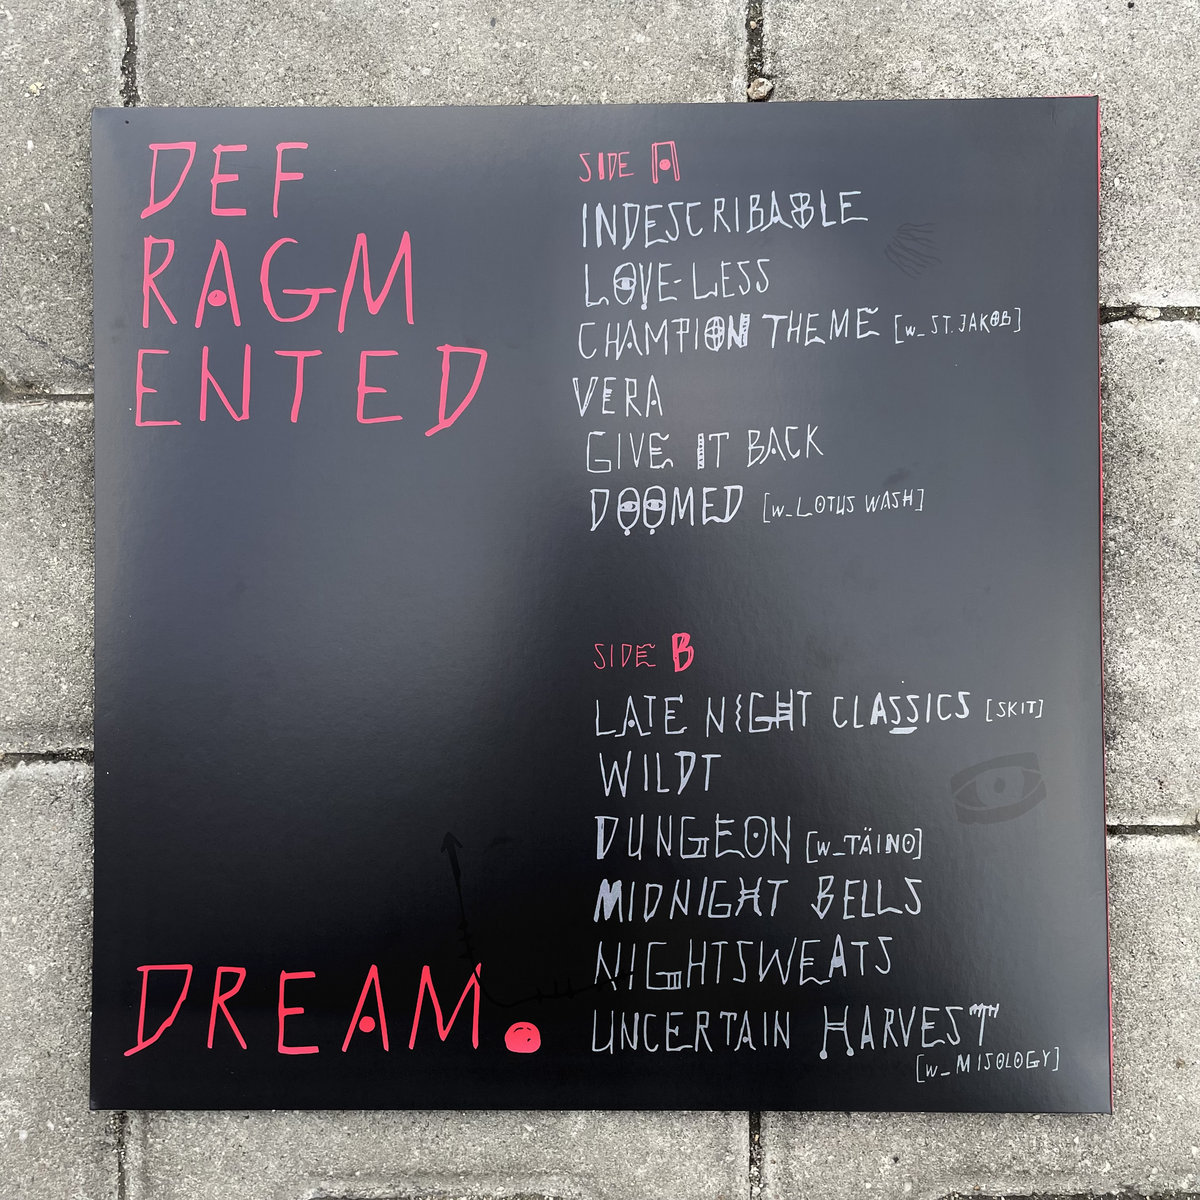 DEF
RAGM
ENTED
DREAM.
SIDE A
INDESCRIBABLE
LOVE-LESS
CHAMPION THEME [W_ST. JAKOB]
VERA
GIVE IT BACK
DOOMED [W_LOTUS WASH]
SIDE B
LATE NIGHT CLASSICS [SKIT]
WILDT
DUNGEON [W_TÄINO]
MIDNIGHT BELLS
NIGHTSWEATS
UNCERTAIN HARVEST
[W_MISOLOGY]